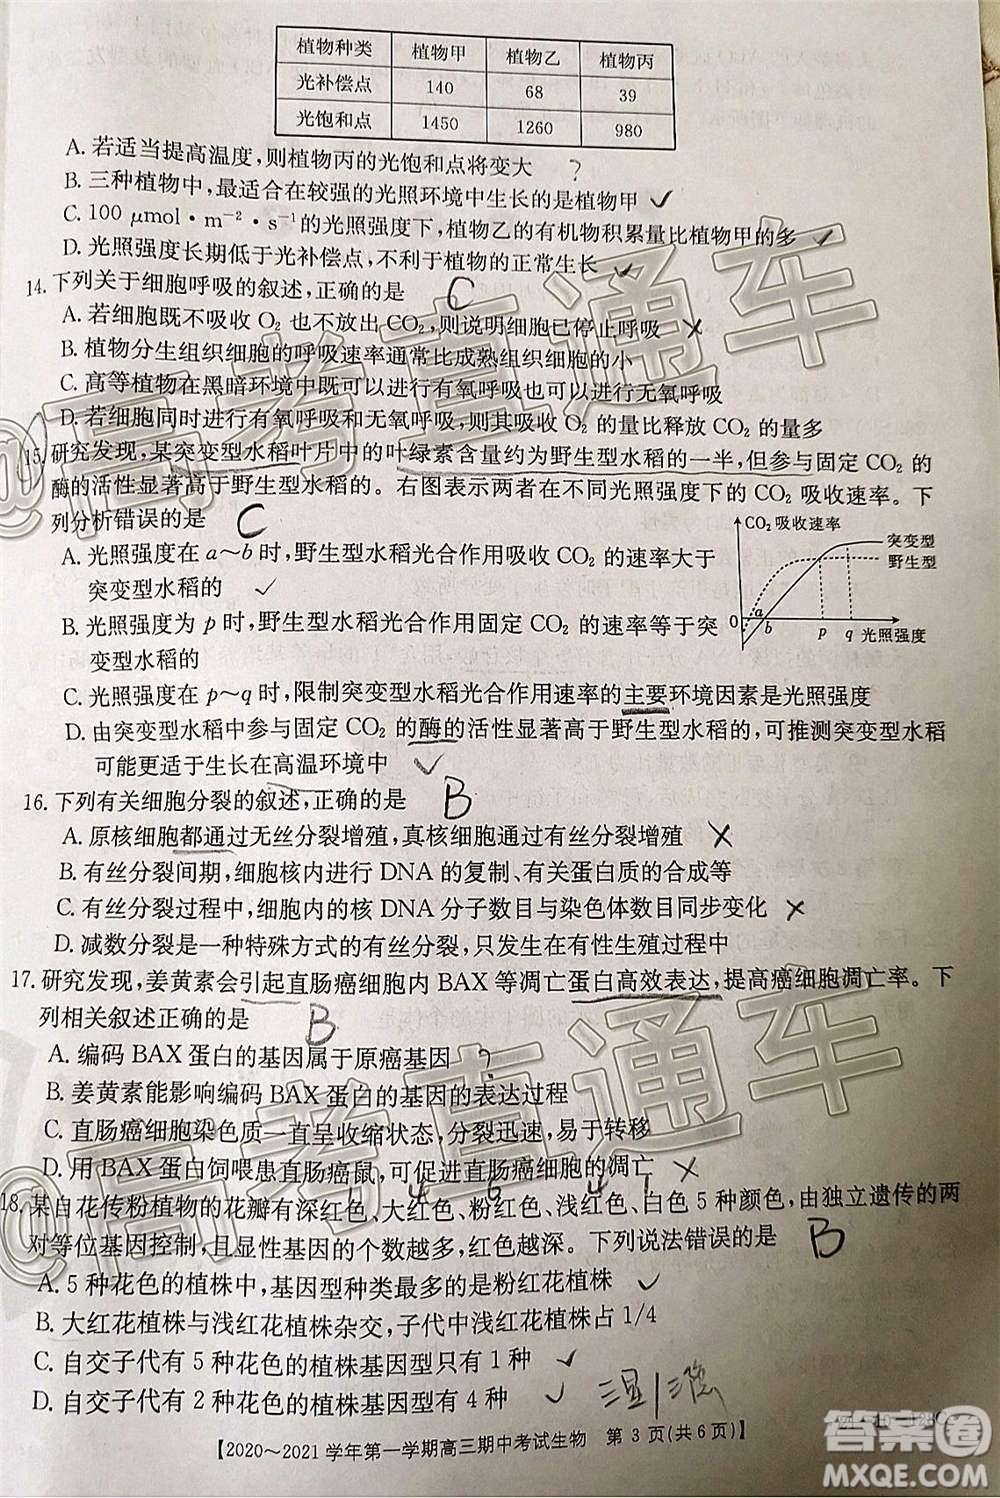 植物种类 植物甲 植物乙 植物丙
光补偿点 140 68 39
光饱和点 1450 1260 980
A. 若适当提高温度,则植物丙的光饱和点将变大 ?
B. 三种植物中,最适合在较强的光照环境中生长的是植物甲 ✓
C. 100 μmol·m⁻²·s⁻¹的光照强度下,植物乙的有机物积累量比植物甲的多 ✓
D. 光照强度长期低于光补偿点,不利于植物的正常生长 ✓
14. 下列关于细胞呼吸的叙述,正确的是 C
A. 若细胞既不吸收 O₂ 也不放出 CO₂,则说明细胞已停止呼吸 ×
B. 植物分生组织细胞的呼吸速率通常比成熟组织细胞的小
C. 高等植物在黑暗环境中既可以进行有氧呼吸也可以进行无氧呼吸
D. 若细胞同时进行有氧呼吸和无氧呼吸,则其吸收 O₂ 的量比释放 CO₂ 的量多
15. 研究发现,某突变型水稻叶片中的叶绿素含量约为野生型水稻的一半,但参与固定 CO₂ 的
酶的活性显著高于野生型水稻的。右图表示两者在不同光照强度下的 CO₂ 吸收速率。下
列分析错误的是 C
A. 光照强度在 a～b 时,野生型水稻光合作用吸收 CO₂ 的速率大于
突变型水稻的 ✓
B. 光照强度为 p 时,野生型水稻光合作用固定 CO₂ 的速率等于突
变型水稻的
CO₂ 吸收速率
突变型
野生型
0 a b p q 光照强度
C. 光照强度在 p～q 时,限制突变型水稻光合作用速率的主要环境因素是光照强度
D. 由突变型水稻中参与固定 CO₂ 的酶的活性显著高于野生型水稻的,可推测突变型水稻
可能更适于生长在高温环境中 ✓
16. 下列有关细胞分裂的叙述,正确的是 B
A. 原核细胞都通过无丝分裂增殖,真核细胞通过有丝分裂增殖 ×
B. 有丝分裂间期,细胞内进行 DNA 的复制、有关蛋白质的合成等
C. 有丝分裂过程中,细胞内的核 DNA 分子数目与染色体数目同步变化 ×
D. 减数分裂是一种特殊方式的有丝分裂,只发生在有性生殖过程中
17. 研究发现,姜黄素会引起直肠癌细胞内 BAX 等凋亡蛋白高效表达,提高癌细胞凋亡率。下
列相关叙述正确的是 B
A. 编码 BAX 蛋白的基因属于原癌基因 ?
B. 姜黄素能影响编码 BAX 蛋白的基因的表达过程
C. 直肠癌细胞染色质一直呈收缩状态,分裂迅速,易于转移
D. 用 BAX 蛋白饲喂患直肠癌鼠,可促进直肠癌细胞的凋亡 ×
1 4 6 4 1
18. 某自花传粉植物的花瓣有深红色、大红色、粉红色、浅红色、白色 5 种颜色,由独立遗传的两
对等位基因控制,且显性基因越多,红色越深。下列说法错误的是 B
A. 5 种花色的植株中,基因型种类最多的是粉红花植株 ✓
B. 大红花植株与浅红花植株杂交,子代中浅红花植株占 1/4
C. 自交子代有 5 种花色的植株基因型只有 1 种 ✓
D. 自交子代有 2 种花色的植株基因型有 4 种 ✓ 三显1三隐
【2020～2021 学年第一学期高三期中考试生物 第 3 页(共 6 页)】
@高考直通车
@高考直通车
答案圈
MXQE.COM